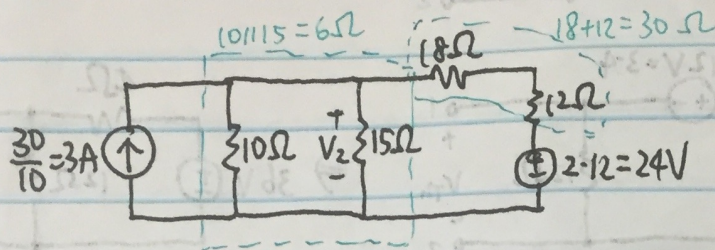 10||15=6Ω
18+12=30Ω
18Ω
12Ω
30/10=3A
10Ω
+
V₂
-
15Ω
+
2·12=24V